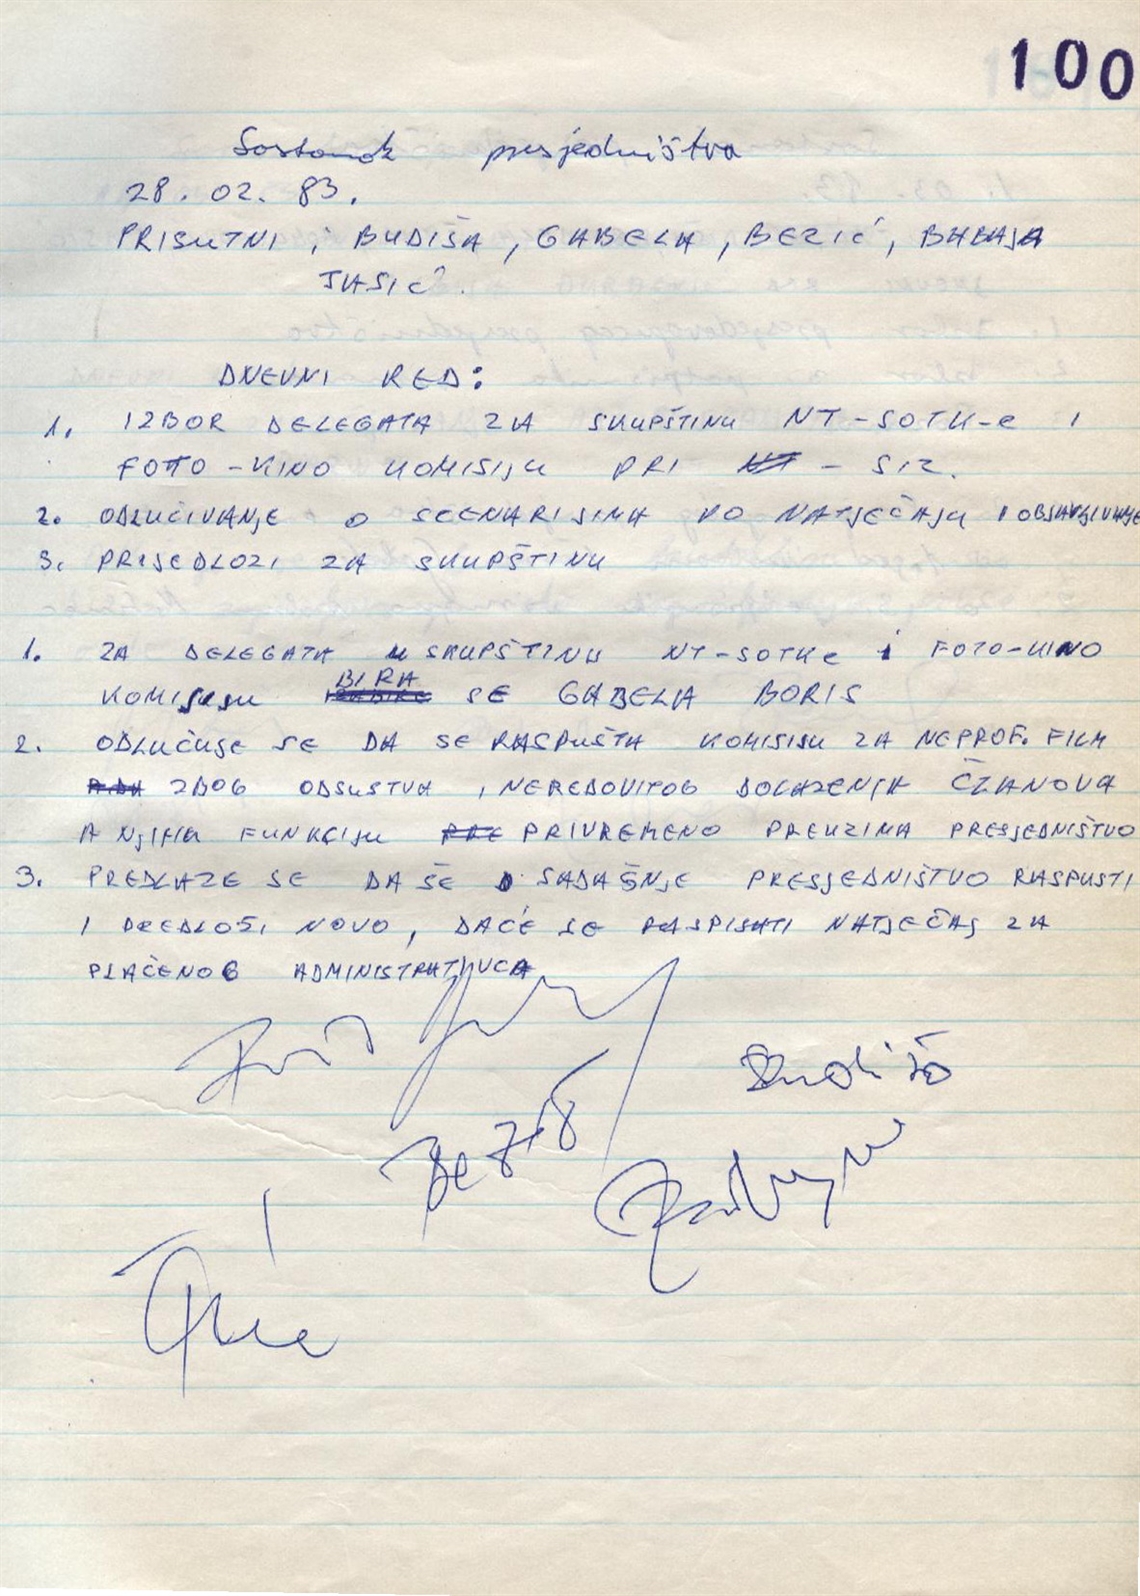 100
Sastanak presjedništva
28. 02. 83.
PRISUTNI; BUDIŠA, GABELA, BEZIĆ, BABAJA
JASIĆ.
DNEVNI RED:
1. IZBOR DELEGATA ZA SKUPŠTINU NT-SOTK-e I
FOTO-KINO KOMISIJU PRI - SIZ.
2. ODLUČIVANJE O SCENARIJIMA PO NATJEČAJU I OBJAVLJIVANJE
3. PRIJEDLOZI ZA SKUPŠTINU
1. ZA DELEGATA U SKUPŠTINU NT-SOTKe i FOTO-KINO
KOMISIJU BIRA SE GABELA BORIS
2. ODLUČUJE SE DA SE RASPUŠTA KOMISIJU ZA NEPROF. FILM
ZBOG ODSUSTVA, NEREDOVITOG DOLAZENJA ČLANOVA
A NJIHU FUNKCIJU PRIVREMENO PREUZIMA PRESJEDNIŠTVO
3. PREDLAZE SE DA ŠE SADAŠNJE PRESJEDNIŠTVO RASPUSTI
I PREDLOŽI NOVO, DAĆE SE RASPISATI NATJEČAJ ZA
PLAČENOG ADMINISTRATIVCA
Bezić
Budiša